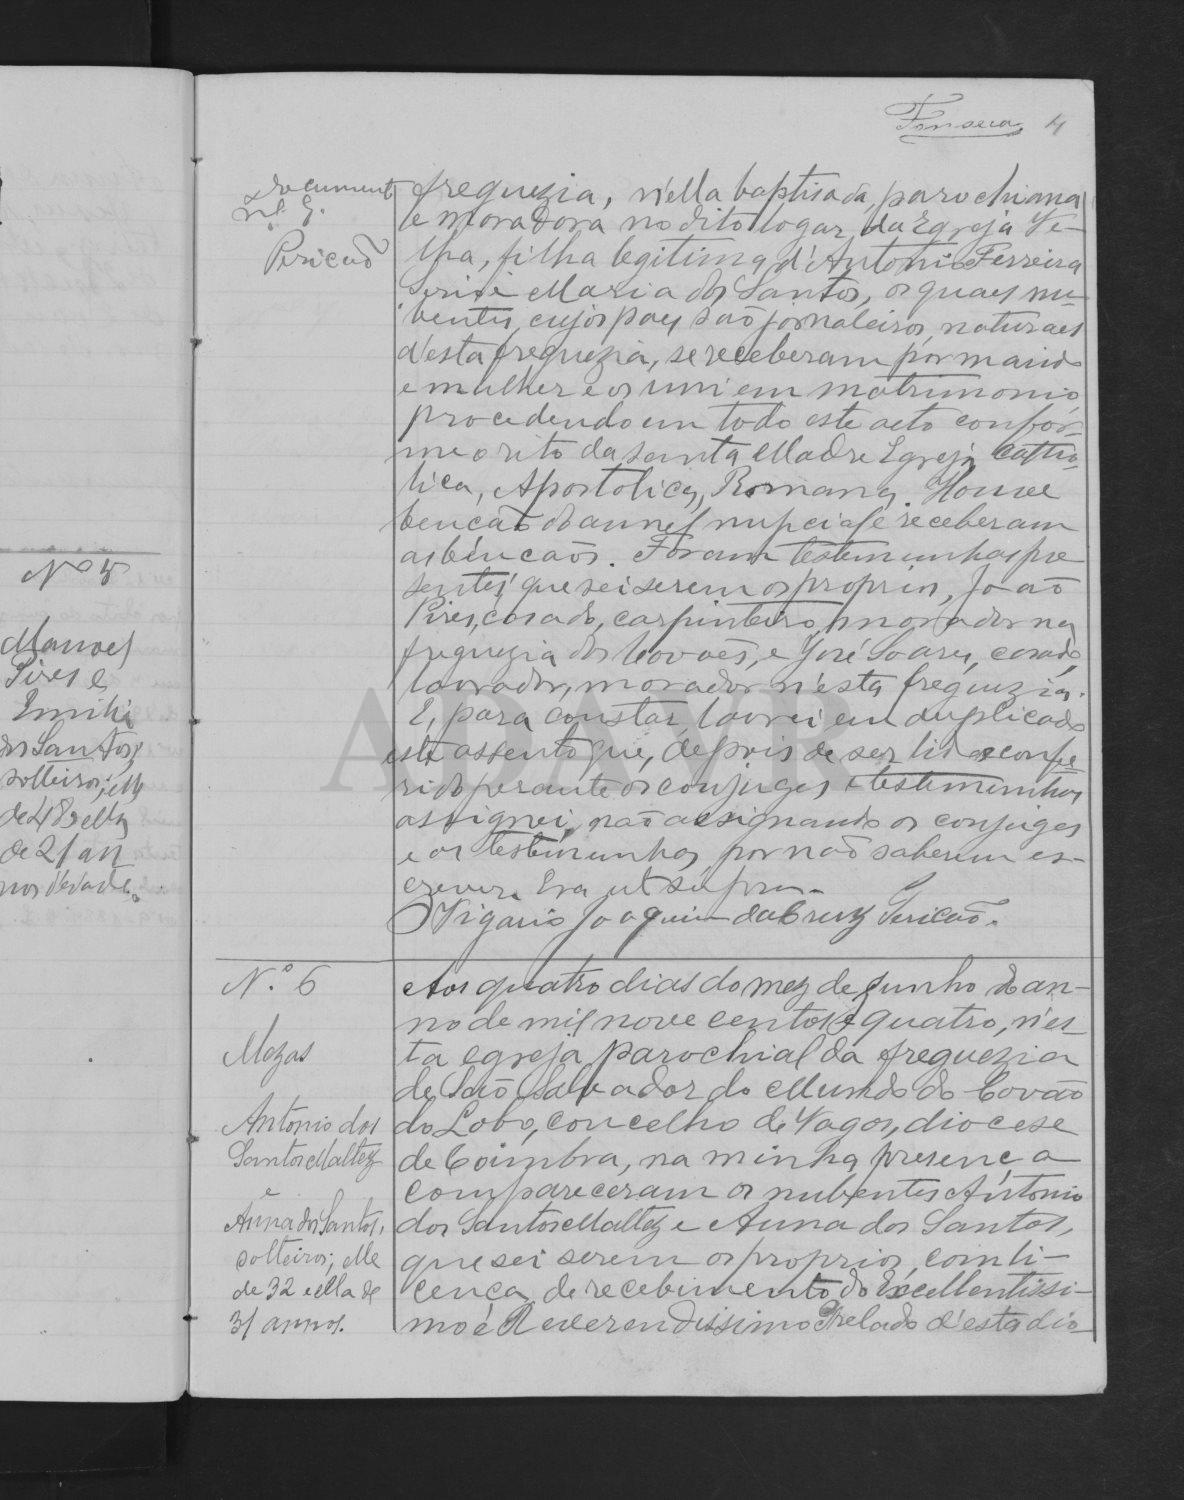 Fonseca 4
Document
nº 8.
Sericaõ
freguezia, n'ella baptisada, parochiana
e moradora no dito logar da Egreja Ve-
lha, filha legitima d'Antonio Ferreira
e Maria dos Santos, os quaes nu-
bentes, cujos paes saõ jornaleiros, naturaes
d'esta freguezia, se receberam por marido
e mulher e os uni em matrimonio
procedendo em todo este acto confor-
me o rito da santa Madre Egreja Catho-
lica, Apostolica, Romana. Houve
bençaõ do annel nupcial e receberam
as bençaõs. Foram testemunhas pre
sentes, que sei serem os proprios, Joaõ
Pires, casado, carpinteiro, morador na
freguezia dos Covoẽs, e José Soares, casado,
lavrador, morador n'esta freguezia.
E, para constar lavrei em duplicado
este assento que, depois de ser lido e confe
rido perante os conjuges e testemunhas
assignei, naõ assignando os conjuges
e as testemunhas por naõ saberem es-
crever. Era ut supra.
O Vigario Joaquim da Cruz Sericaõ.
Nº 5
Manoel
Pires e
Emilia
dos Santos,
solteiros; elle
de 48 e ella
de 21 an
nos d'edade.
N.º 6
Mezas
Antonio dos
Santos Maltez
e
Anna dos Santos,
solteiros; elle
de 32 e ella de
31 annos.
Aos quatro dias do mez de Junho do an-
no de mil nove centos e quatro, n'es-
ta egreja parochial da freguezia
de Saõ Salvador do Mundo do Covaõ
do Lobo, concelho de Vagos, diocese
de Coimbra, na minha presença
compareceram os nubentes Antonio
dos Santos Maltez e Anna dos Santos,
que sei serem os proprios, com li-
cença de recebimento do Excellentissi-
mo e Reverendissimo Prelado d'esta dio-
ADAVR